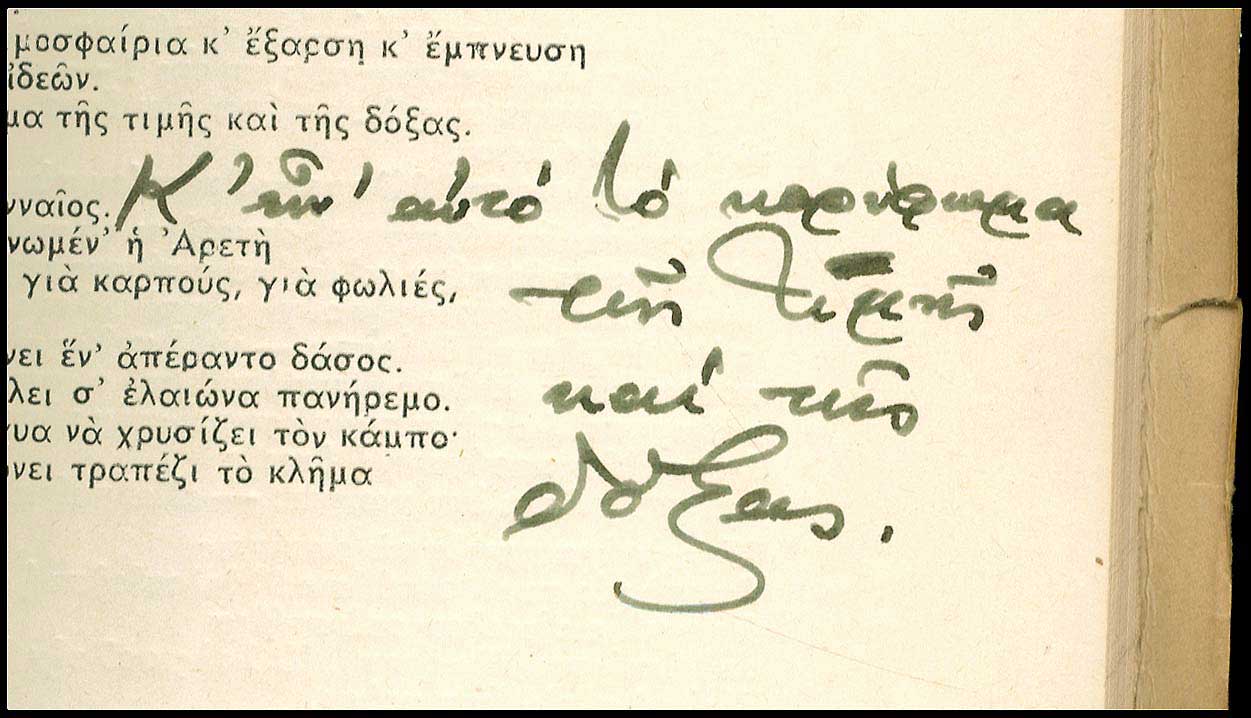 μοσφαίρια κ' ἔξαρση κ' ἔμπνευση
ἰδεῶν.
μα τῆς τιμῆς καὶ τῆς δόξας.
νναῖος. Κ' εἶν' αὐτό τό κορύφωμα
νωμέν' ἡ Ἀρετὴ
τῆς Τιμῆς
γιὰ καρπούς, γιὰ φωλιές,
νει ἕν' ἀπέραντο δάσος.
καί τῆς
λει σ' ἐλαιώνα πανήρεμο.
χυα νὰ χρυσίζει τὸν κάμπο·
δόξας.
νει τραπέζι τὸ κλῆμα